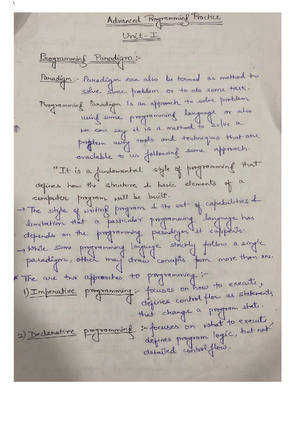 Advanced Programming Practice
Unit-I
Programming Paradigm :-
Paradigm :- Paradigm can also be termed as method to
solve some problem or to do some task.
Programming Paradigm is an approach to solve problem
using some programming language or also
we can say it is a method to solve a
problem using tools and techniques that are
available to us following some approach.
"It is a fundamental style of programming that
defines how the structure & basic elements of a
computer program will be built.
→ The style of writing program & the set of capabilities &
limitations that a particular programming language has
depends on the programming paradigm it supports.
→ While some programming language strictly follow a single
paradigm, other may draw concepts from more than one.
* The are two approaches to programming :-
1) Imperative programming :- focuses on how to execute,
defines control flow as statements
that change a program state.
2) Declarative programming :- focuses on what to execute,
defines program logic, but not
detailed control flow.